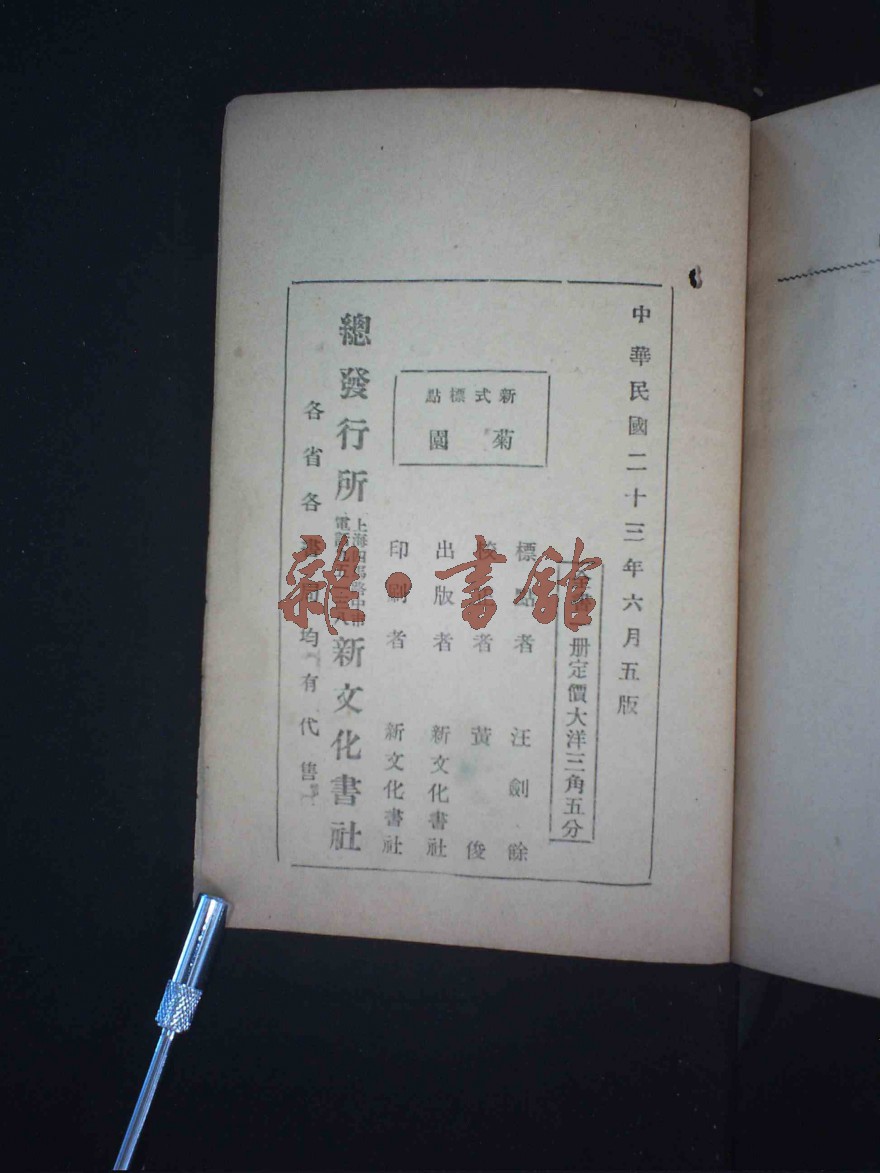 中華民國二十三年六月五版
冊定價大洋三角五分
新式標點
菊園
標點者 汪劍餘
校閱者 黃俊
出版者 新文化書社
印刷者 新文化書社
總發行所 新文化書社
上海四馬路中市
各省各書局均有代售
雜·書館